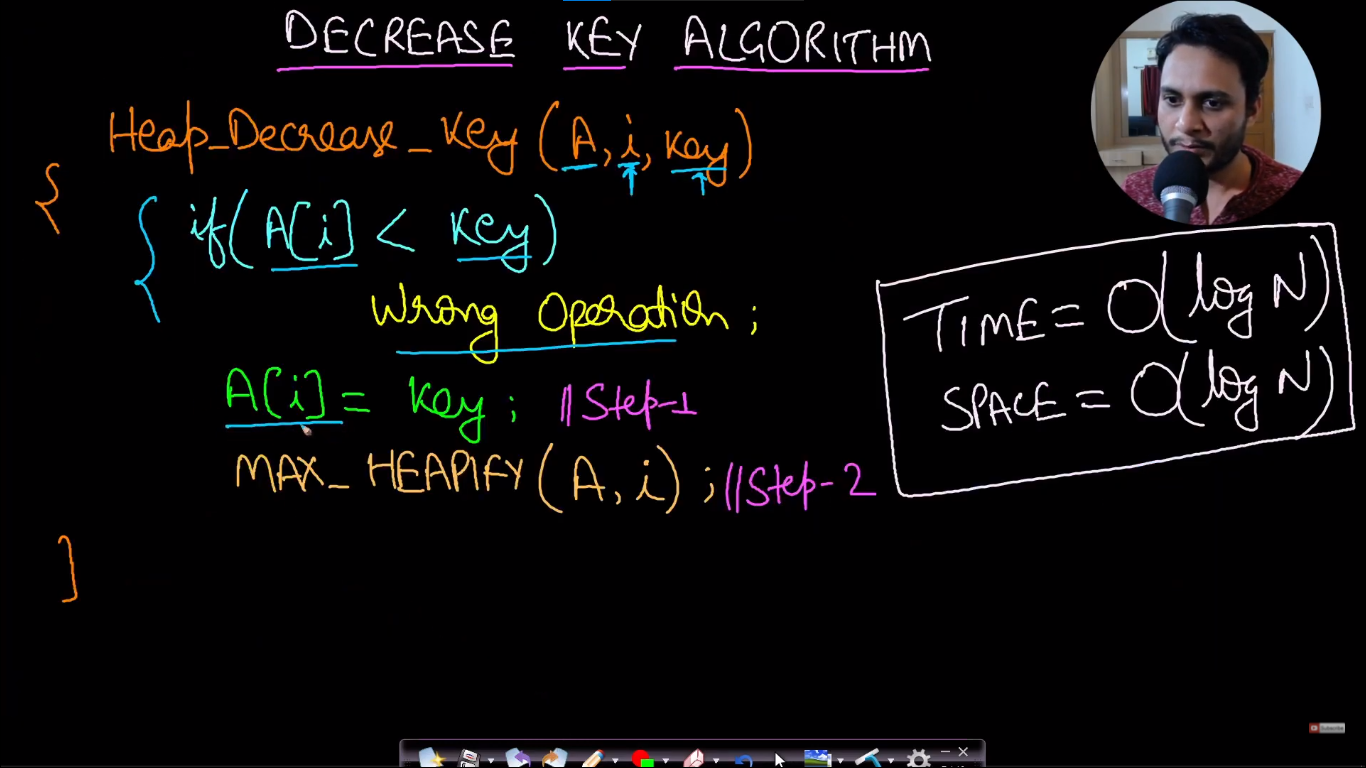 DECREASE KEY ALGORITHM
Heap_Decrease_Key (A, i, key)
{
{ if (A[i] < key)
Wrong Operation ;
A[i] = key ; // Step-1
MAX_HEAPIFY (A, i) ; // Step-2
]
TIME = O(log N)
SPACE = O(log N)